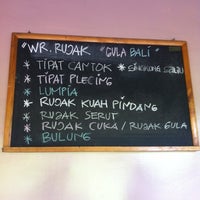 "WR. RUJAK "GULA BALI"
* TIPAT CANTOK * SINGKONG
* TIPAT PLECING
* LUMPIA
* RUJAK KUAH PINDANG
* RUJAK SERUT
* RUJAK CUKA / RUJAK GULA
* BULUNG